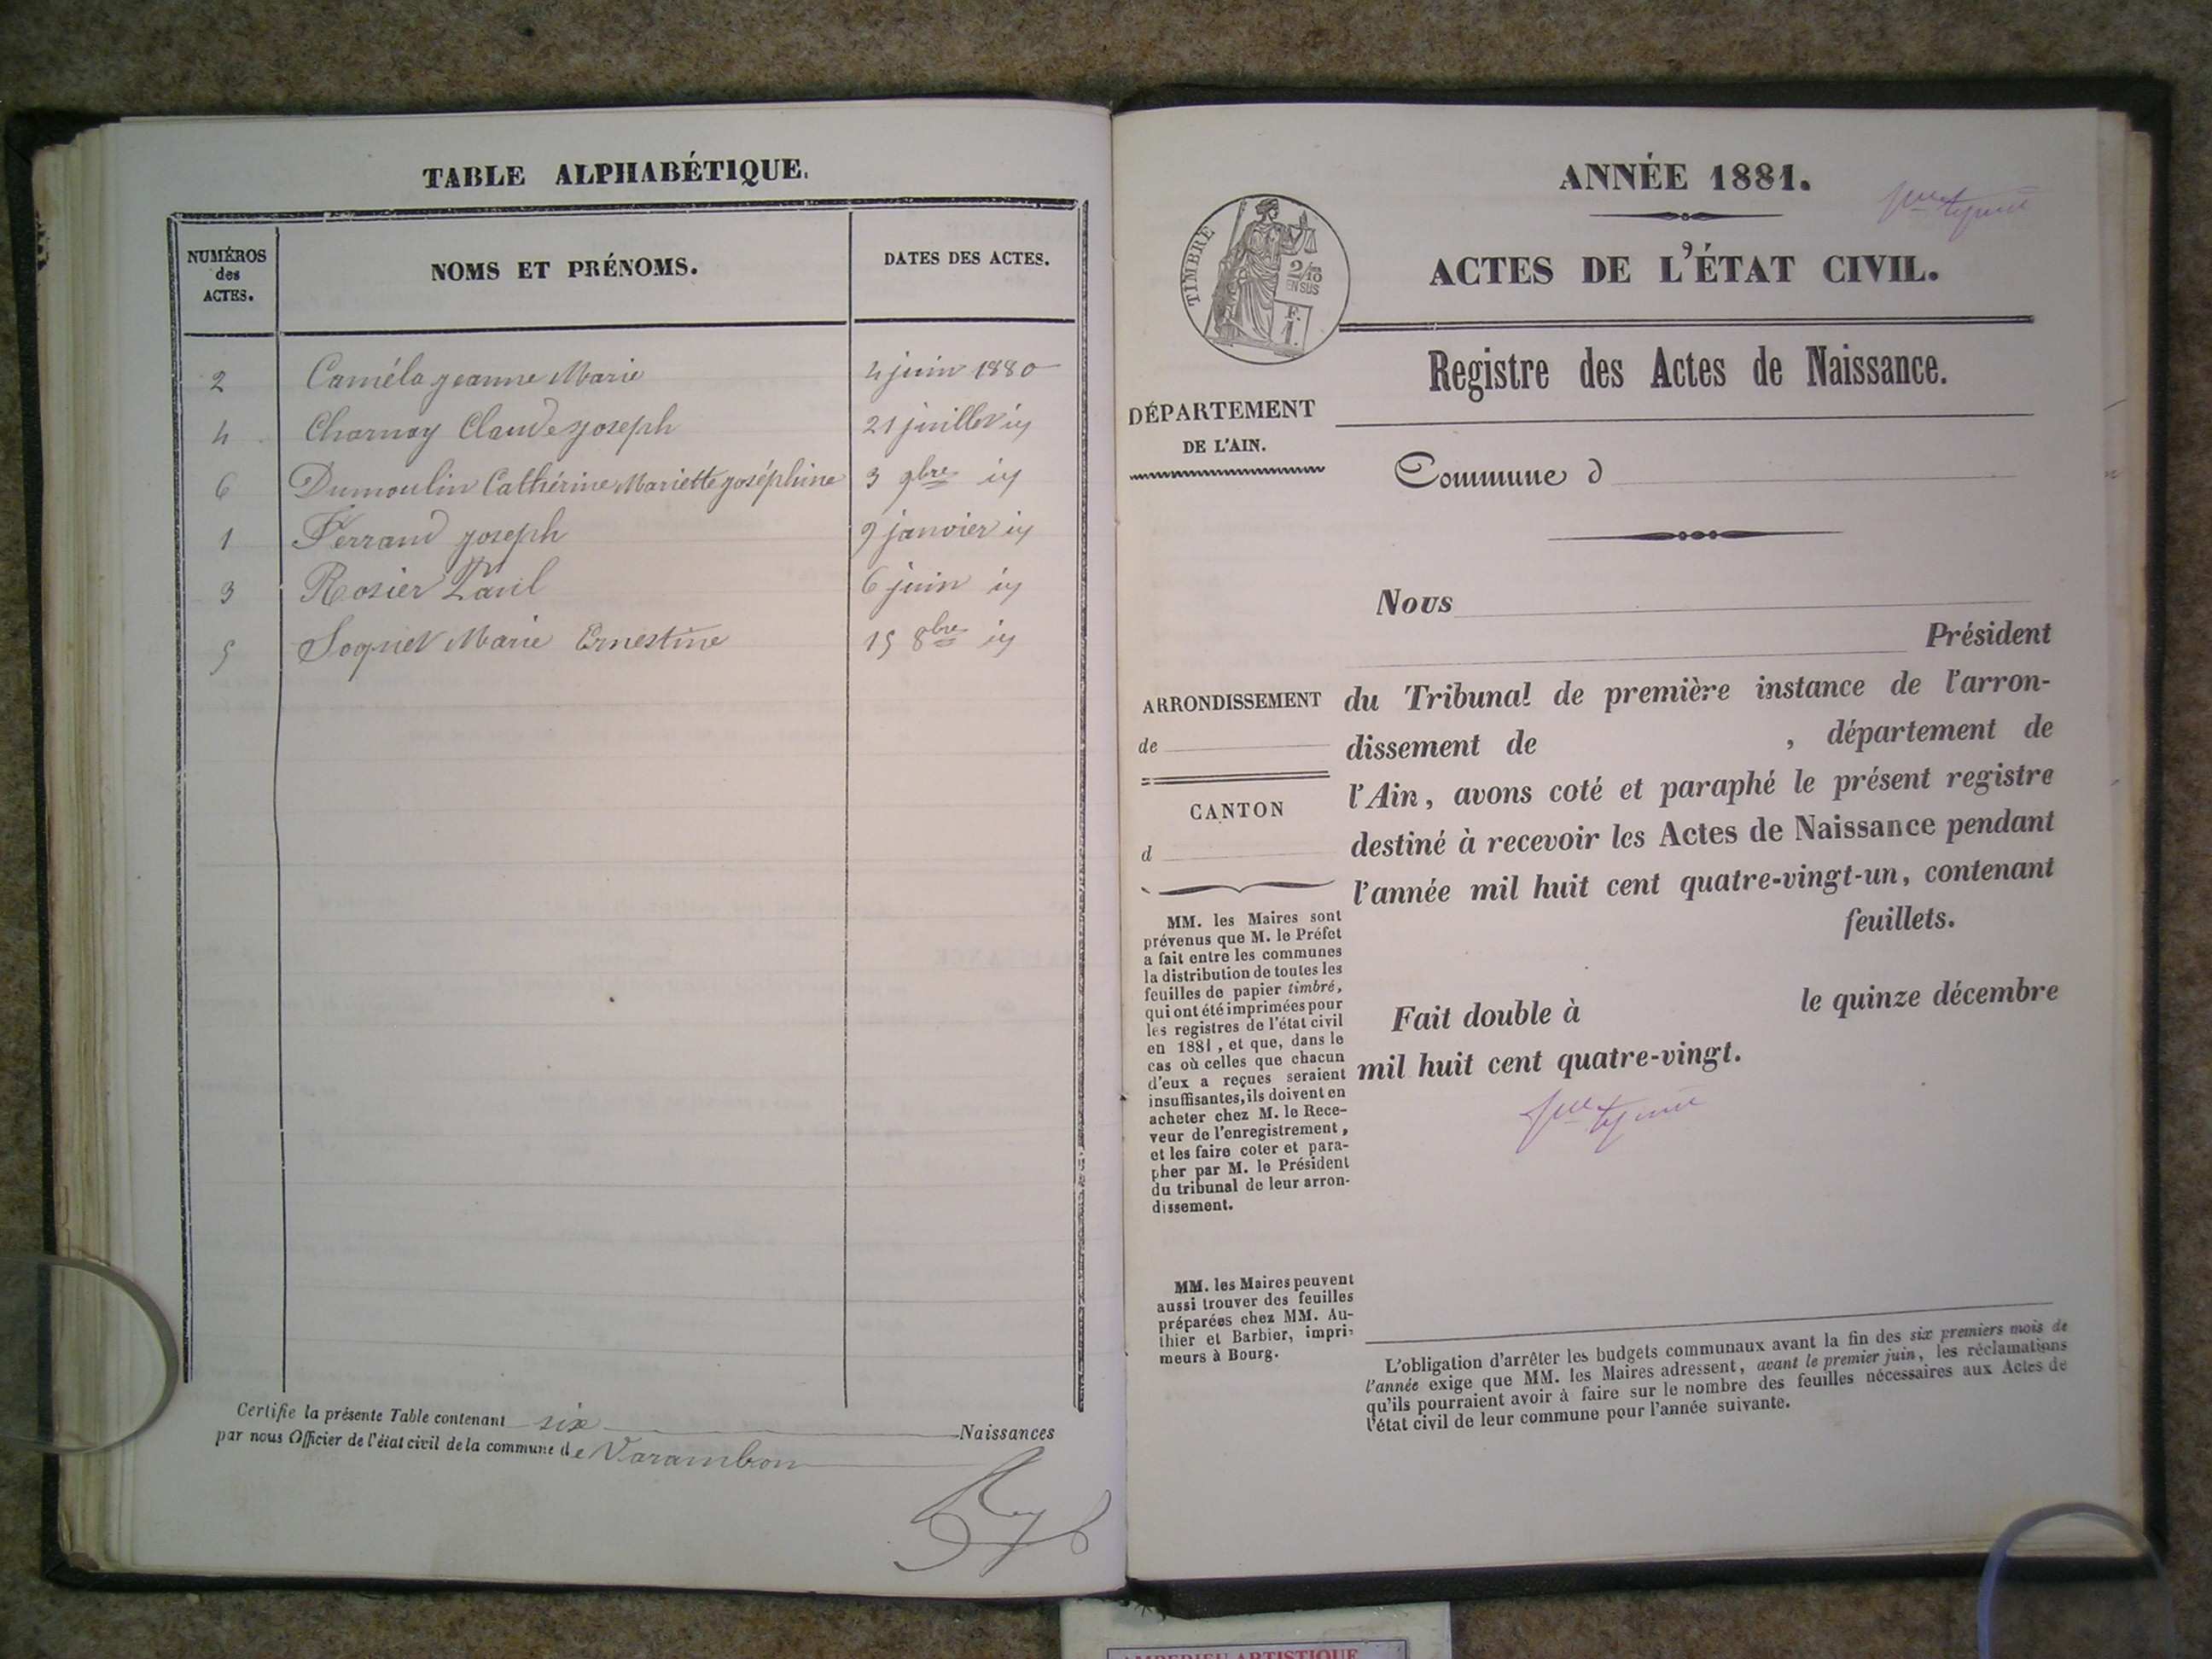 TABLE ALPHABÉTIQUE.
NUMÉROS
des
ACTES.
NOMS ET PRÉNOMS.
DATES DES ACTES.
2 Caméla jeanne Marie 4 juin 1880
4 Charnay Claude joseph 21 juillet id
6 Dumoulin Cathérine Mariette joséphine 3 9bre id
1 Ferrand joseph 9 janvier id
3 Rosier Paul 6 juin id
5 Soquet Marie Ernestine 15 8bre id
Certifie la présente Table contenant six Naissances
par nous Officier de l'état civil de la commune de Varambon
ANNÉE 1881.
TIMBRE
2/10
EN SUS
F.
1.
ACTES DE L'ÉTAT CIVIL.
Registre des Actes de Naissance.
DÉPARTEMENT
DE L'AIN.
Commune d
Nous
Président
ARRONDISSEMENT
de
CANTON
d
du Tribunal de première instance de l'arron-
dissement de , département de
l'Ain, avons coté et paraphé le présent registre
destiné à recevoir les Actes de Naissance pendant
l'année mil huit cent quatre-vingt-un, contenant
feuillets.
Fait double à le quinze décembre
mil huit cent quatre-vingt.
MM. les Maires sont
prévenus que M. le Préfet
a fait entre les communes
la distribution de toutes les
feuilles de papier timbré,
qui ont été imprimées pour
les registres de l'état civil
en 1881, et que, dans le
cas où celles que chacun
d'eux a reçues seraient
insuffisantes, ils doivent en
acheter chez M. le Rece-
veur de l'enregistrement,
et les faire coter et para-
pher par M. le Président
du tribunal de leur arron-
dissement.
MM. les Maires peuvent
aussi trouver des feuilles
préparées chez MM. Au-
thier et Barbier, impri-
meurs à Bourg.
L'obligation d'arrêter les budgets communaux avant la fin des six premiers mois de
l'année exige que MM. les Maires adressent, avant le premier juin, les réclamations
qu'ils pourraient avoir à faire sur le nombre des feuilles nécessaires aux Actes de
l'état civil de leur commune pour l'année suivante.